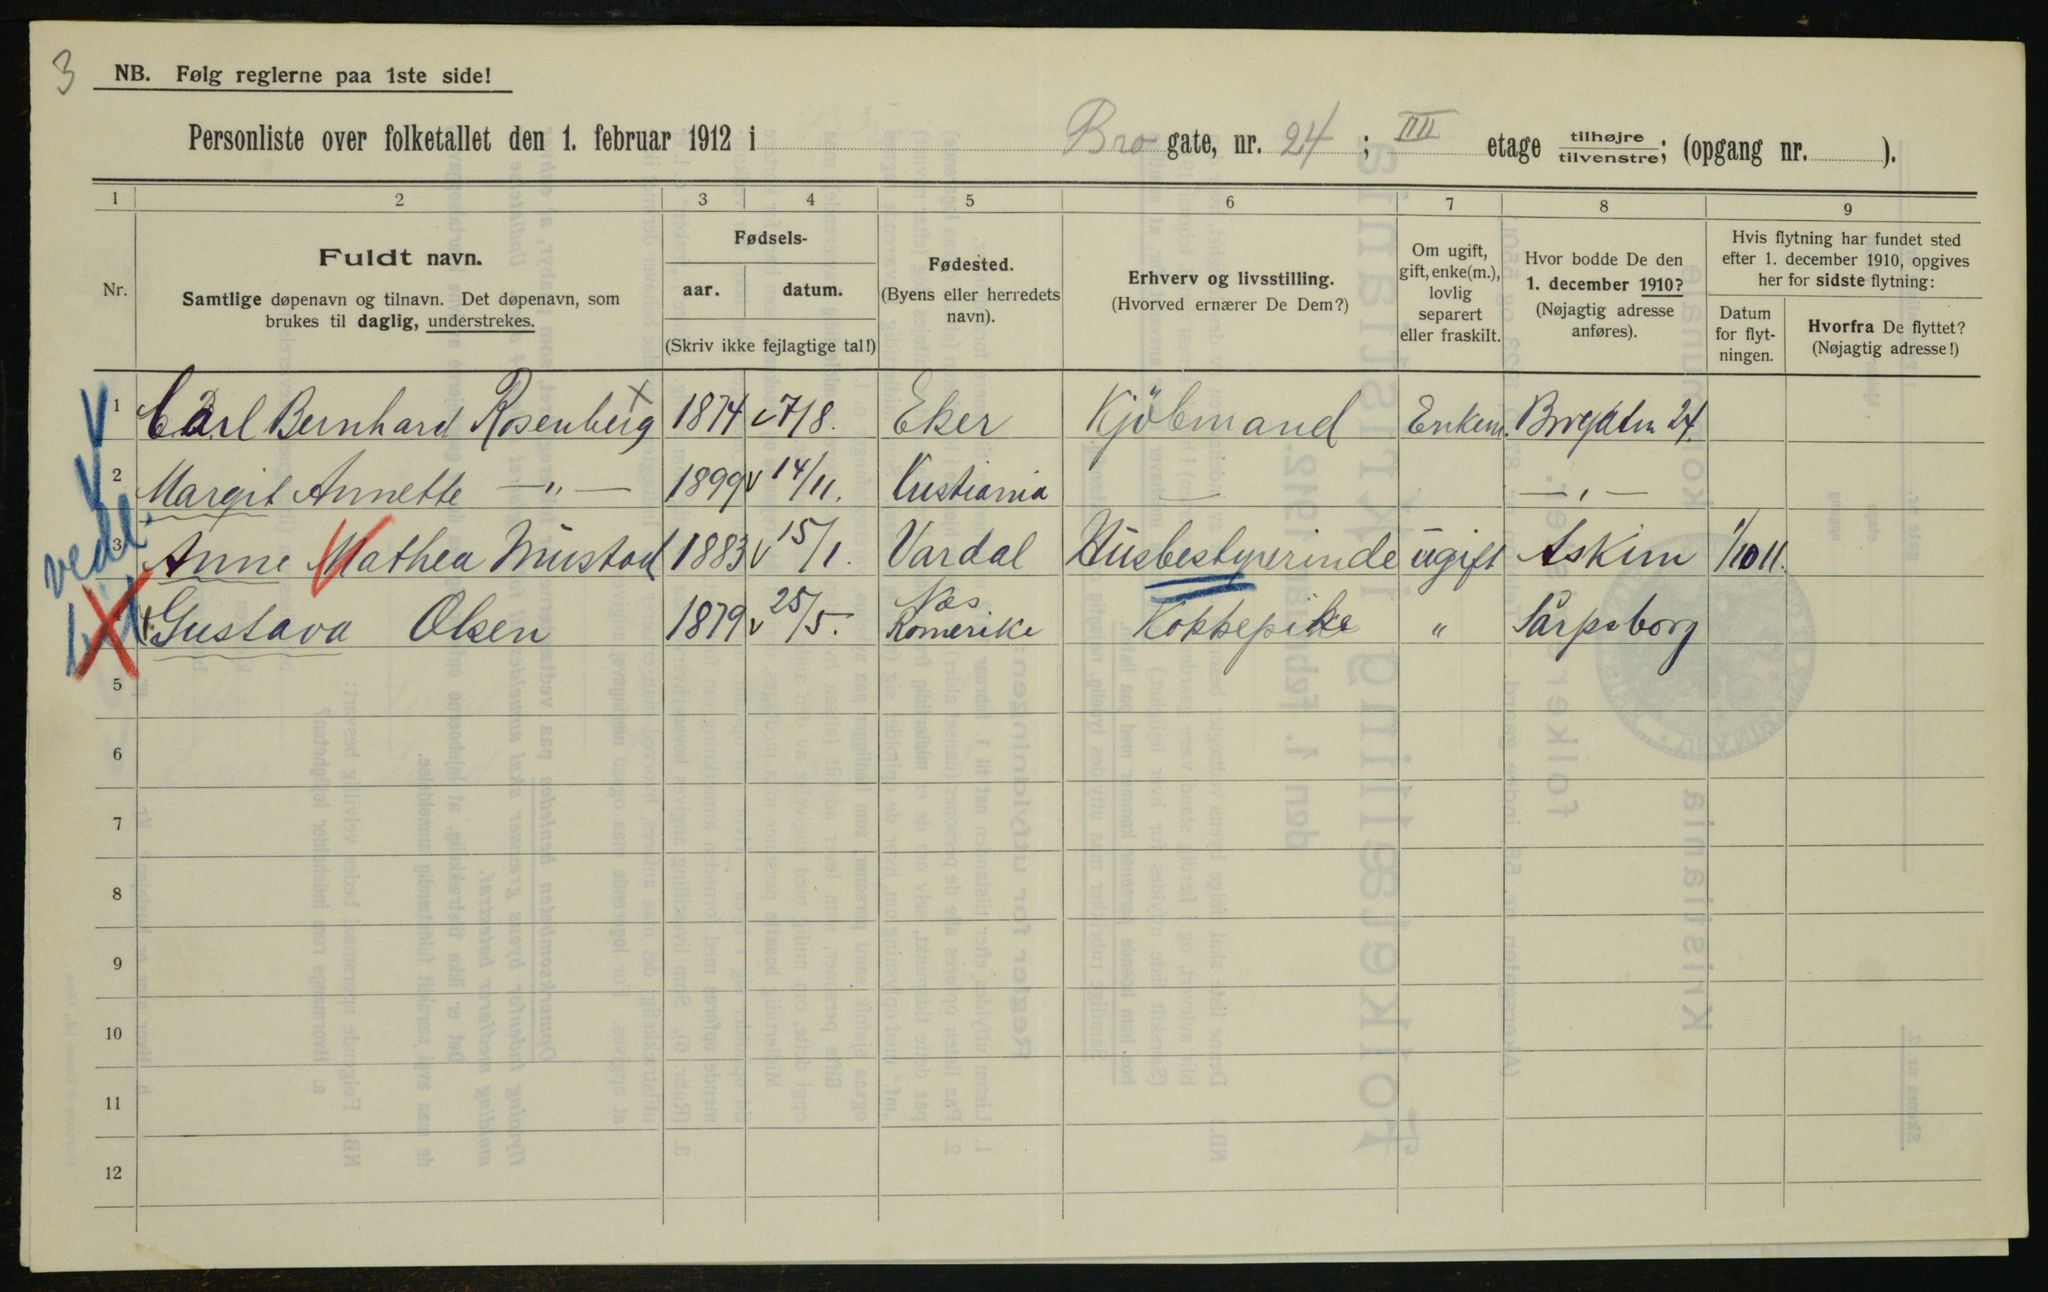 3
NB. Følg reglerne paa 1ste side!
Personliste over folketallet den 1. februar 1912 i Bro gate, nr. 24 ; III etage tilhøjre/tilvenstre; (opgang nr. ).
1 2 3 4 5 6 7 8 9
Nr.
Fuldt navn.
Samtlige døpenavn og tilnavn. Det døpenavn, som
brukes til daglig, understrekes.
Fødsels-
aar. datum.
(Skriv ikke fejlagtige tal!)
Fødested.
(Byens eller herredets
navn).
Erhverv og livsstilling.
(Hvorved ernærer De Dem?)
Om ugift,
gift, enke(m.),
lovlig
separert
eller fraskilt.
Hvor bodde De den
1. december 1910?
(Nøjagtig adresse
anføres).
Hvis flytning har fundet sted
efter 1. december 1910, opgives
her for sidste flytning:
Datum
for flyt-
ningen.
Hvorfra De flyttet?
(Nøjagtig adresse!)
1 Carl Bernhard Rosenberg 1874 7/8. Eker Kjöbmand Enkem. Brogaten 24.
2 Margit Annette —"— 1899 14/11. Kristiania — —"—
3 Anne Mathea Mustad 1883 15/1. Vardal Husbestyrerinde ugift Askim 1/10 11.
4 Gustava Olsen 1879 25/5. Næs Romerike Kokkepike " Sarpsborg
5
6
7
8
9
10
11
12